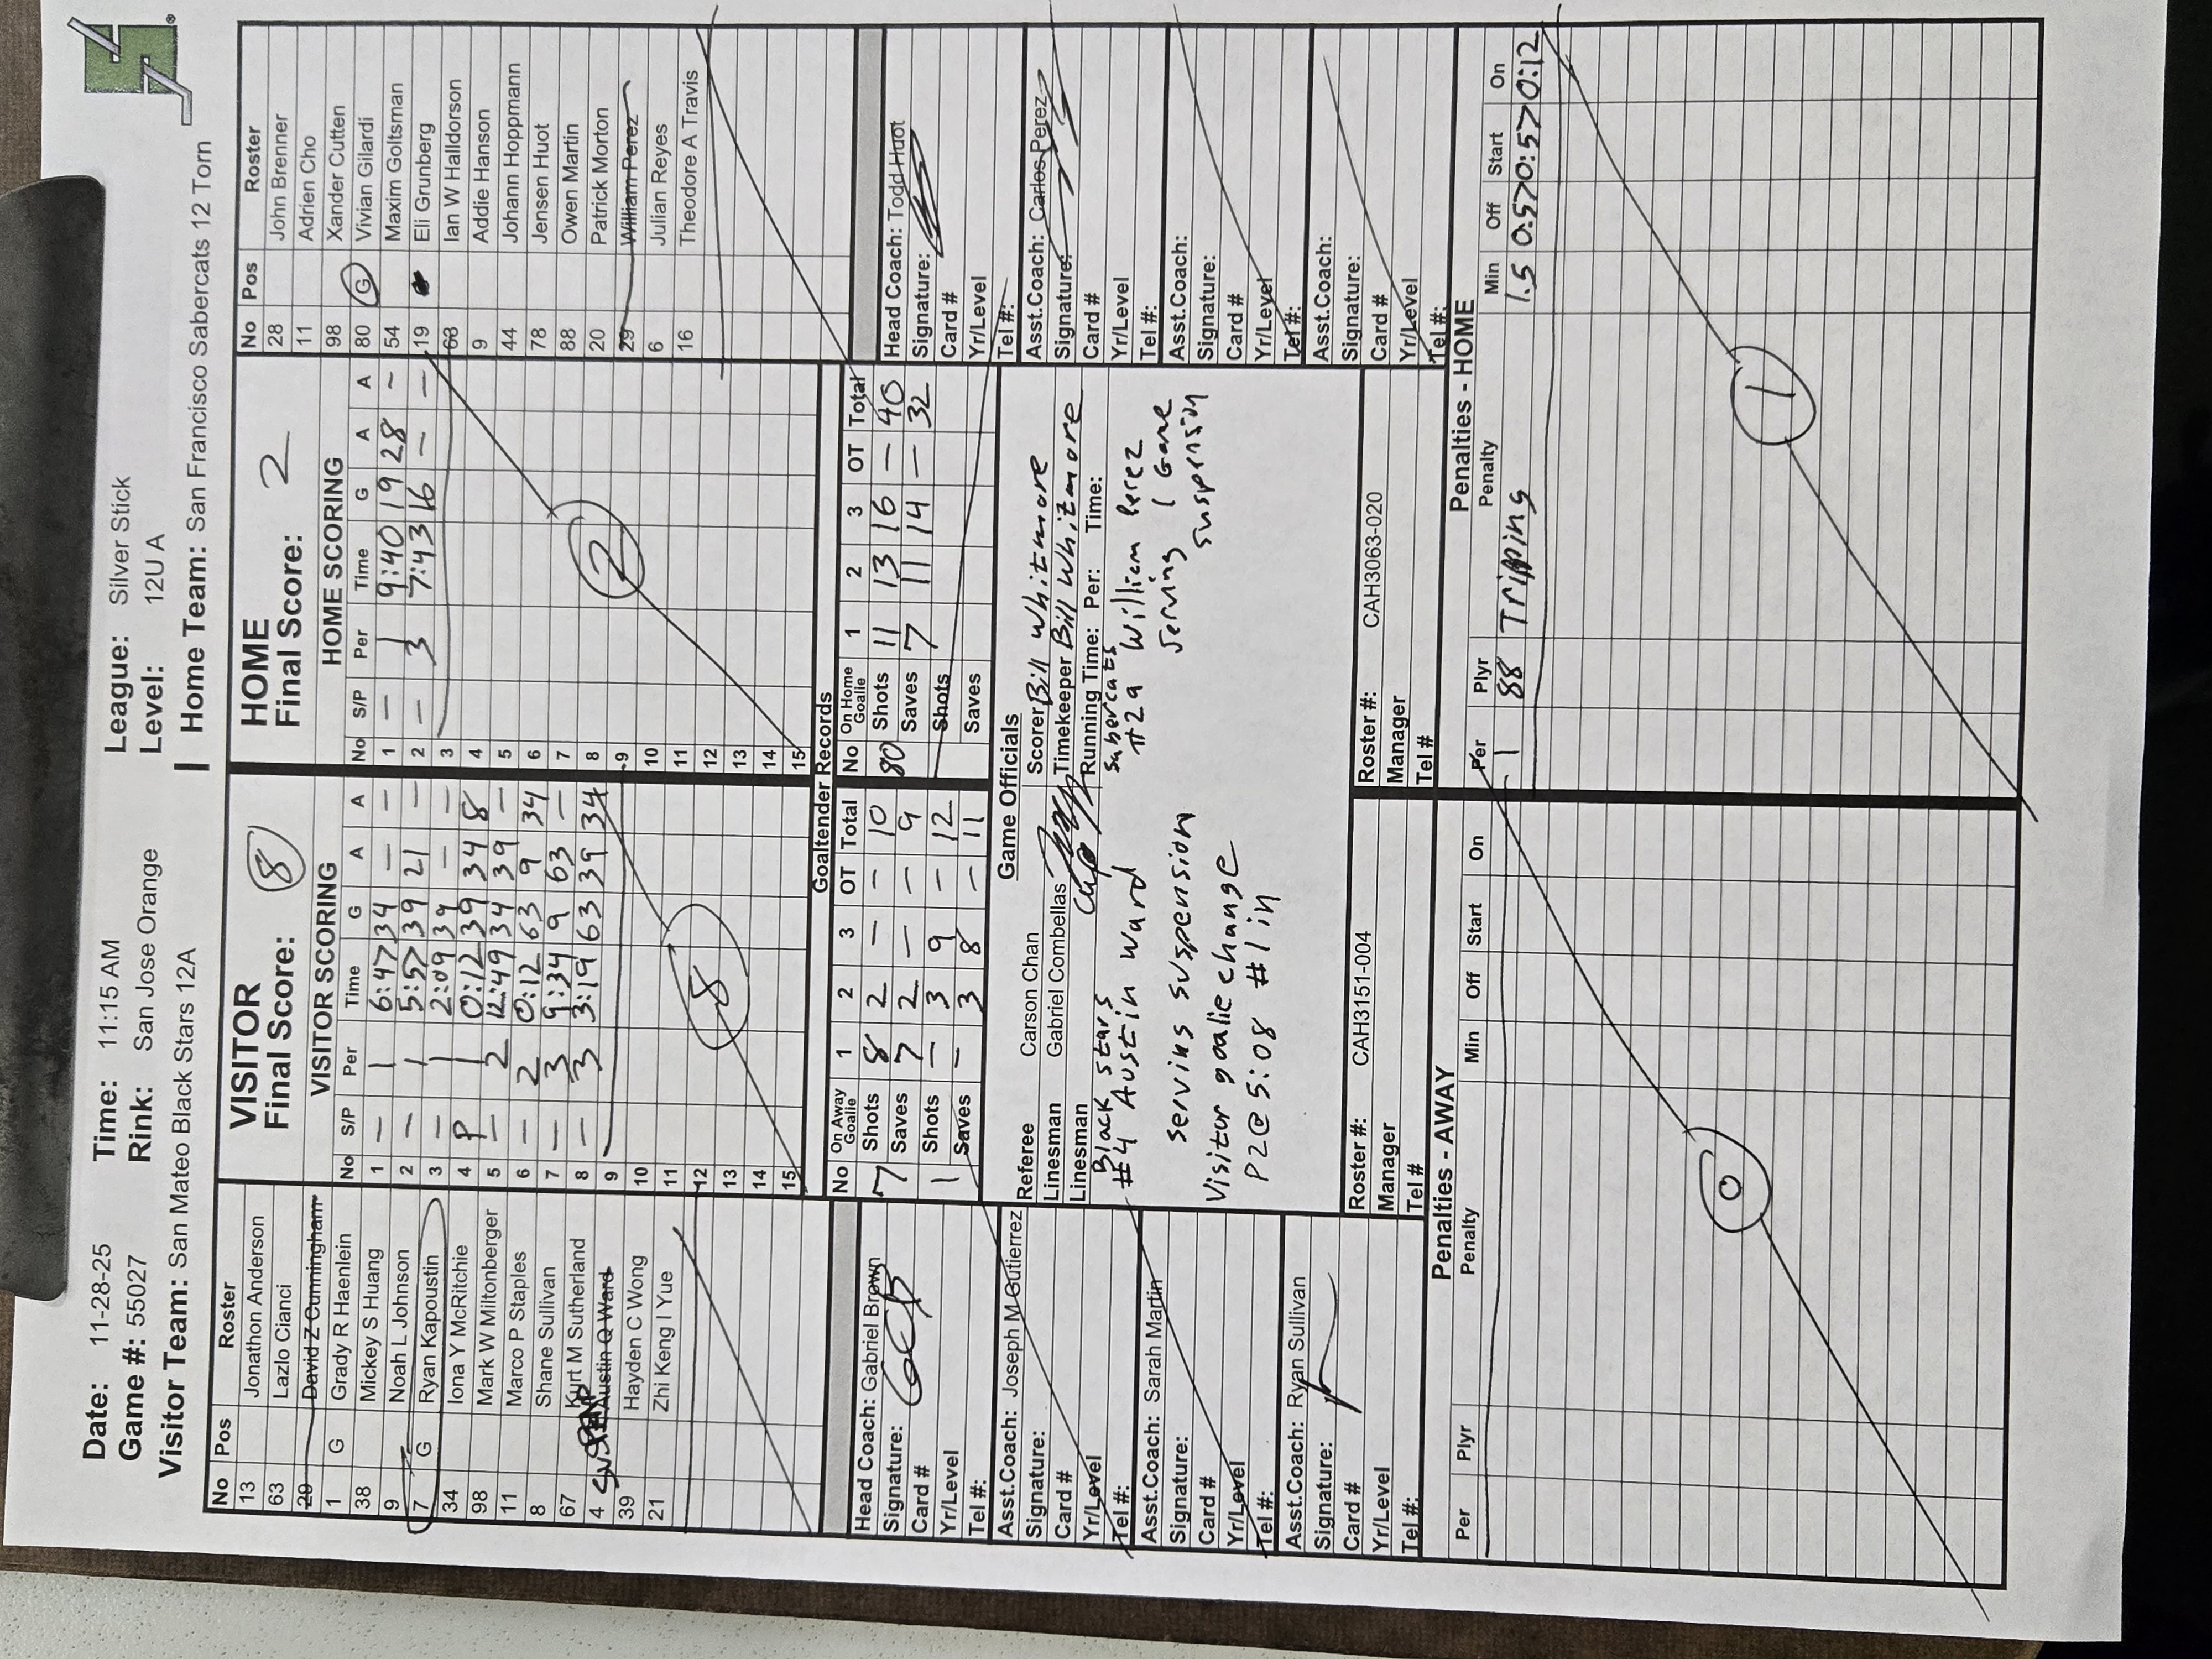 Date: 11-28-25 Time: 11:15 AM League: Silver Stick
Game #: 55027 Rink: San Jose Orange Level: 12U A
Visitor Team: San Mateo Black Stars 12A | Home Team: San Francisco Sabercats 12 Torn
No Pos Roster
13 Jonathon Anderson
63 Lazlo Cianci
29 David Z Cunningham
1 G Grady R Haenlein
38 Mickey S Huang
9 Noah L Johnson
7 G Ryan Kapoustin
34 Iona Y McRitchie
98 Mark W Miltonberger
11 Marco P Staples
8 Shane Sullivan
67 Kurt M Sutherland
4 Austin Q Ward
39 Hayden C Wong
21 Zhi Keng I Yue
VISITOR
Final Score: 8
VISITOR SCORING
No S/P Per Time G A A
1 – 1 6:47 34 – –
2 – 1 5:57 39 21 –
3 – 1 2:09 39 – –
4 P 1 0:12 39 34 8
5 – 2 12:49 34 39 –
6 – 2 0:12 63 9 34
7 – 3 9:34 9 63 –
8 – 3 3:19 63 39 34
9
10
11
12
13
14
15
8
HOME
Final Score: 2
HOME SCORING
No S/P Per Time G A A
1 – 1 9:40 19 28 ~
2 – 3 7:43 16 – –
3
4
5
6
7
8
9
10
11
12
13
14
15
2
No Pos Roster
28 John Brenner
11 Adrien Cho
98 Xander Cutten
80 G Vivian Gilardi
54 Maxim Goltsman
19 Eli Grunberg
68 Ian W Halldorson
9 Addie Hanson
44 Johann Hoppmann
78 Jensen Huot
88 Owen Martin
20 Patrick Morton
29 William Perez
6 Julian Reyes
16 Theodore A Travis
Goaltender Records
No On Away Goalie 1 2 3 OT Total
7 Shots 8 2 – – 10
Saves 7 2 – – 9
1 Shots – 3 9 – 12
Saves – 3 8 – 11
No On Home Goalie 1 2 3 OT Total
80 Shots 11 13 16 – 40
Saves 7 11 14 – 32
Shots
Saves
Head Coach: Gabriel Brown
Signature:
Card #
Yr/Level
Tel #:
Asst.Coach: Joseph M Gutierrez
Signature:
Card #
Yr/Level
Tel #:
Asst.Coach: Sarah Martin
Signature:
Card #
Yr/Level
Tel #:
Asst.Coach: Ryan Sullivan
Signature:
Card #
Yr/Level
Tel #:
Game Officials
Referee Carson Chan
Linesman Gabriel Combellas
Linesman
Scorer Bill Whitmore
Timekeeper Bill Whitmore
Running Time: Per: Time:
Black Stars
#4 Austin Ward
serving suspension
Visitor goalie change
P2@ 5:08 #1 in
Sabercats
#29 William Perez
Serving 1 Game
suspension
Roster #: CAH3151-004
Manager
Tel #
Roster #: CAH3063-020
Manager
Tel #
Head Coach: Todd Huot
Signature:
Card #
Yr/Level
Tel #:
Asst.Coach: Carlos Perez
Signature:
Card #
Yr/Level
Tel #:
Asst.Coach:
Signature:
Card #
Yr/Level
Tel #:
Asst.Coach:
Signature:
Card #
Yr/Level
Tel #:
Penalties - AWAY
Per Plyr Penalty Min Off Start On
0
Penalties - HOME
Per Plyr Penalty Min Off Start On
1 88 Tripping 1.5 0:57 0:57 0:12
1